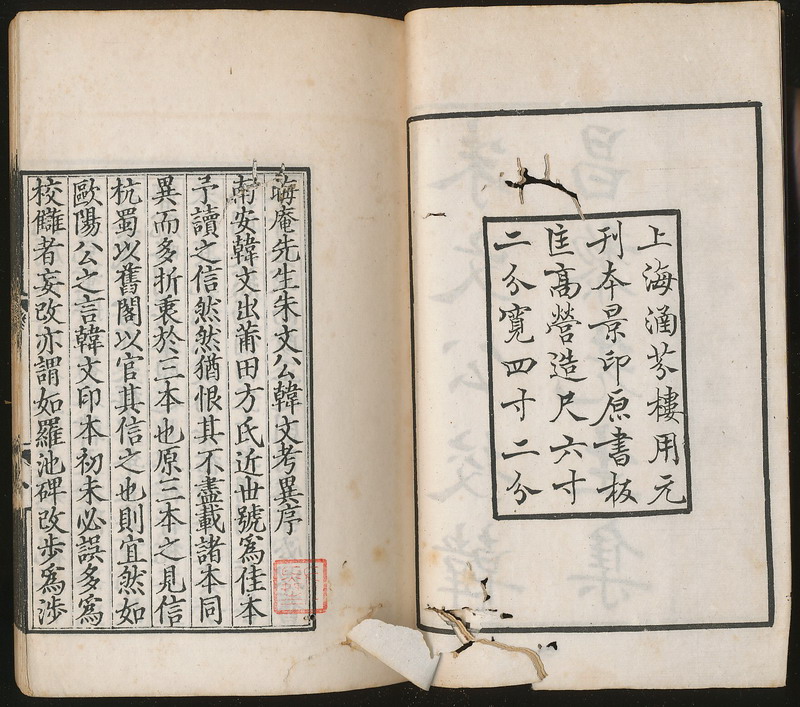 上海涵芬樓用元
刊本景印原書板
匡高營造尺六寸
二分寬四寸二分
晦庵先生朱文公韓文考異序
南安韓文出莆田方氏近世號爲佳本
予讀之信然然猶恨其不盡載諸本同
異而多折衷於三本也原三本之見信
杭蜀以舊閣以官其信之也則宜然如
歐陽公之言韓文印本初未必誤多爲
校讎者妄改亦謂如羅池碑改步爲涉